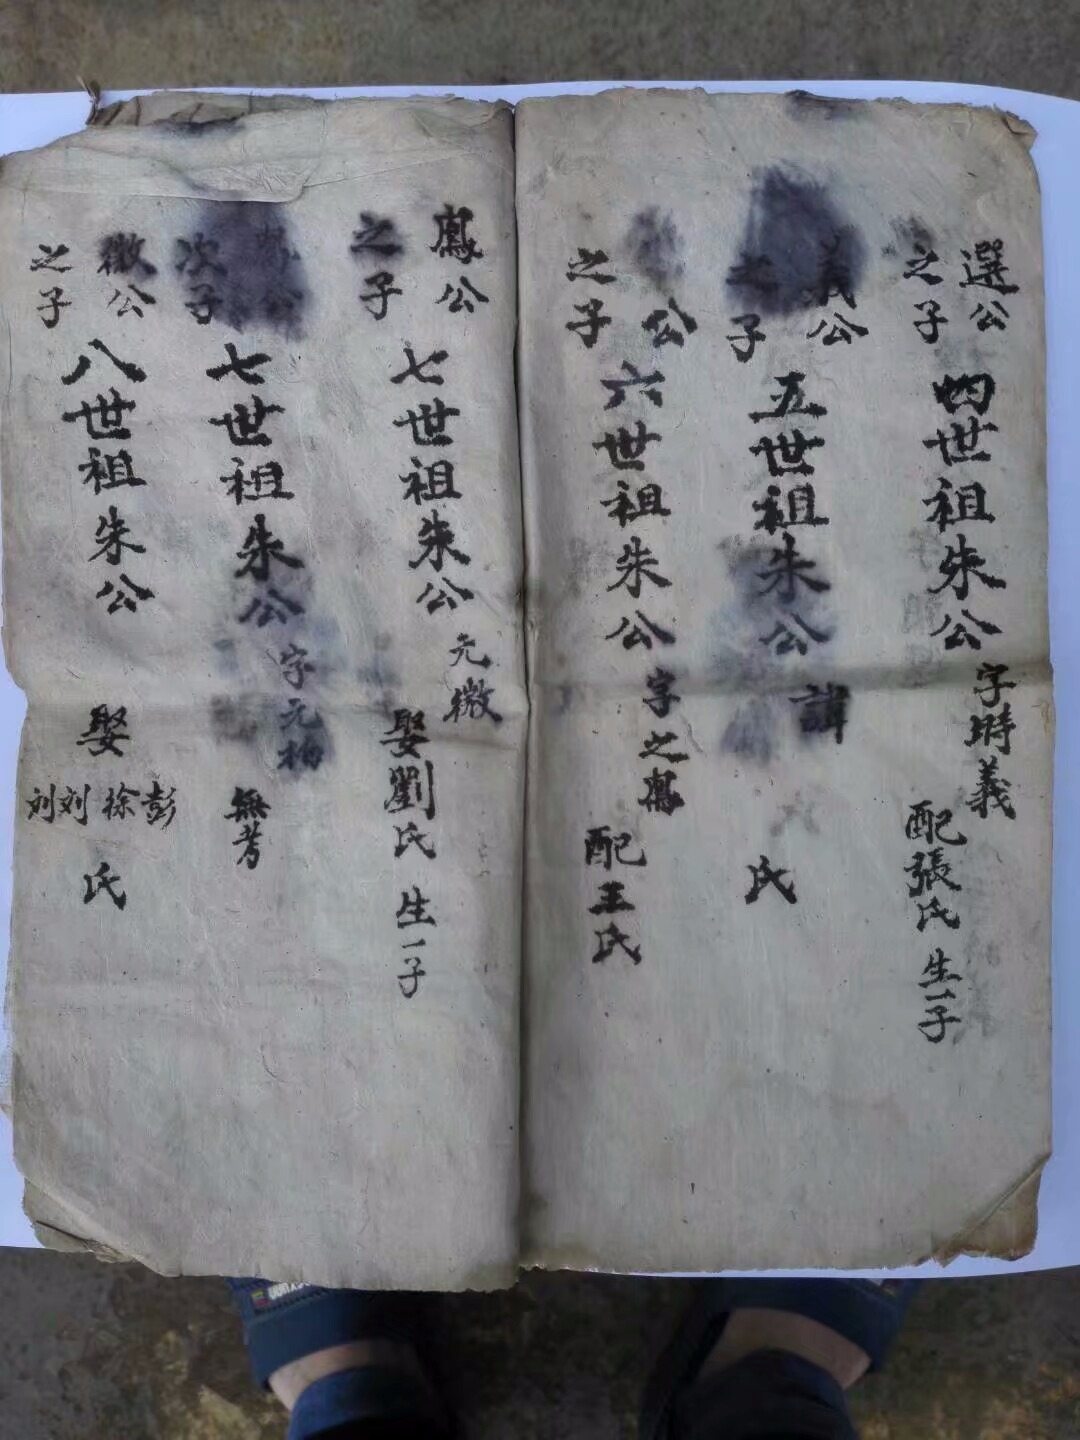 選公
之子
四世祖朱公
字時義
配張氏 生一子
義公
之子
五世祖朱公
諱
氏
公
之子
六世祖朱公
字之鳳
配王氏
鳳公
之子
七世祖朱公
元微
娶劉氏 生一子
鳳公
次子
七世祖朱公
字元梅
無考
微公
之子
八世祖朱公
娶
彭
徐
刘
刘
氏